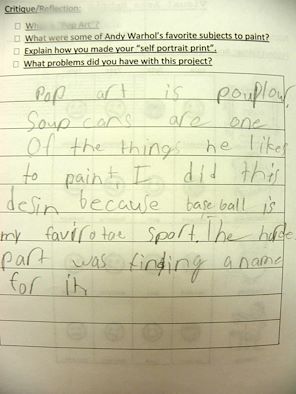 Critique/Reflection:
What is "Pop Art"?
What were some of Andy Warhol's favorite subjects to paint?
Explain how you made your "self portrait print".
What problems did you have with this project?
Pop art is pouplour
Soup cans are one
Of the things he likes
to paint, I did this
desin because base ball is
my favirotae sport. The harde
part was finding a name
for it